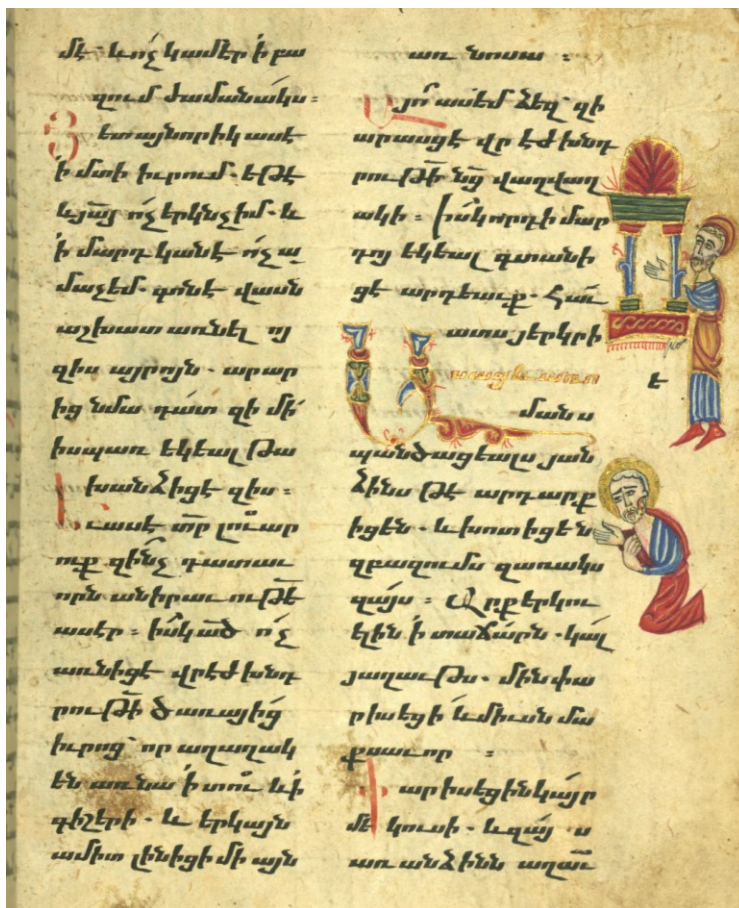 մէ· և ոչ կամէր ՛ի բա
զում ժամանակս։
Յետ այնորիկ ասէ
՛ի մտի իւրում· եթէ
և յայ ոչ երկնչիմ· և
՛ի մարդկանէ ոչ ա
մաչեմ· գոնէ վասն
աշխատ առնել ոյ
զիս այրոյն· արար
ից նմա դատ զի մի
իսպառ եկեալ թա
խանձիցէ զիս։
Եւ ասէ տր լուար
ուք զինչ դատաւ
որն անիրաւութե
ասէր։ իսկ ած ոչ
առնիցէ վրէժխնդ
րութի ծառայից
իւրոց՝ որ աղաղակ
են առ նա ՛ի տուէ և ՛ի
գիշերի· և երկայն
ամիտ լինիցի մի այն
առ նոսա։
Այո ասեմ ձեզ՝ զի
արասցէ վր էժխնդ
րութի նց վաղվաղ
ակի։ իսկ որդի մար
դոյ եկեալ գտանի
ցէ արդեաւք· հաւ
ատս յերկրի
Ասաց և առ ո
մանս
պանծացեալս յան
ձինս թէ արդարք
իցեն· և խոտիցեն
զբազումս զառակս
զայս։ Արք երկու
ելին ՛ի տաճարն· կալ
յաղաւթս· մին փա
րիսեցի և միւսն մա
քսաւոր։
Փարիսեցին կայր
մեկուսի· և զայս
առ անձինն աղաւ
է